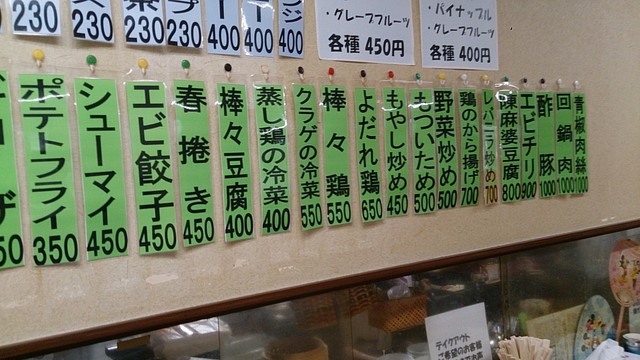 230
230
230
230
400
400
400
・グレープフルーツ
各種 450円
・パイナップル
・グレープフルーツ
各種 400円
ポテトフライ 350
シューマイ 450
エビ餃子 450
春捲き 450
棒々豆腐 400
蒸し鶏の冷菜 400
クラゲの冷菜 550
棒々鶏 550
よだれ鶏 650
もやし炒め 450
もついため 500
野菜炒め 500
鶏のから揚げ 700
レバニラ炒め 700
陳麻婆豆腐 800
エビチリ 900
酢豚 1000
回鍋肉 1000
青椒肉絲 1000
テイクアウト
ご希望のお客様